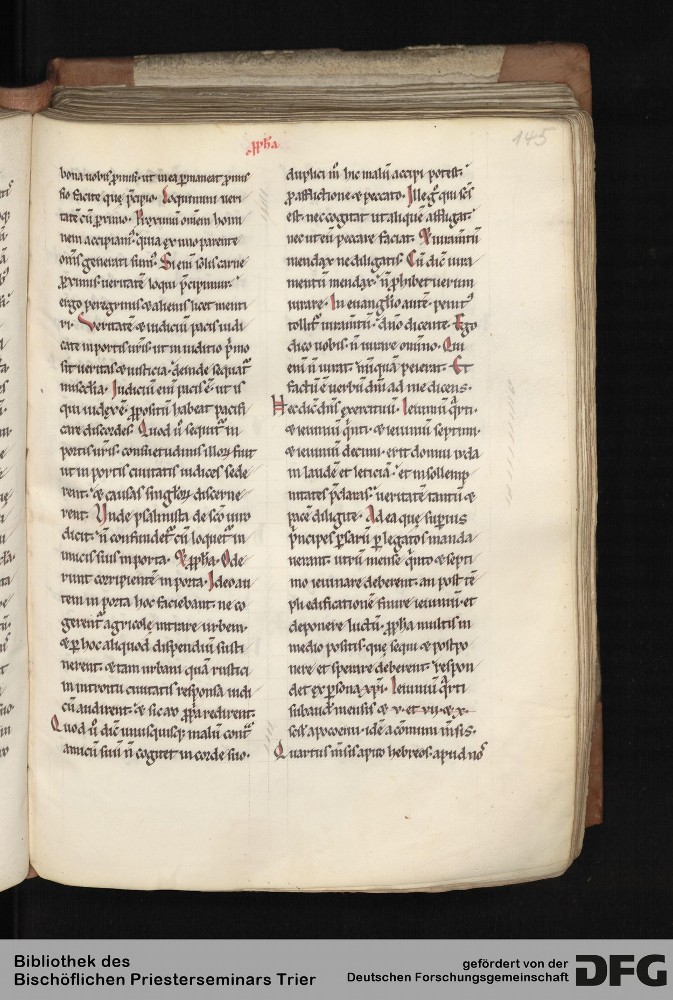 145
bona uobis ꝓmisi· ut in ea ꝑmaneat ꝓmis
sio facite que p̄cipio· Loquimini ueri
tatē cū proximo· Proximū omnem homi
nem accipiam᷒· quia ex uno parente
om̄s generati sum᷒· Si eni᷒ solis carne
proximis ueritatē loqui p̄cipimur·
ergo peregrinis ⁊ alienis licet menti
ri· Veritatē ⁊ iudiciū pacis iudi
cate in portis ur̄is· ut in iuditio p̄mo
sit ueritas ⁊ iusticia· deinde sequat᷒
mis̄cdia· Iudiciū eni᷒ pacis ē· ut is
qui iudex ē· ꝓpositū habeat pacifi
care discordes· Quod u᷒ sequit᷒ in
portis ur̄is· consuetudinis illoꝝ fuit
ut in portis ciuitatis iudices sede
rent· ⁊ causas singloꝝ discerne
rent· Vnde psalmista de sc̄o uiro
dicit· n̄ confundet᷒ cū loquet᷒ in
imicis suis in porta· Et ꝓpha· Ode
runt corripientē in porta· Ideo au
tem in porta hoc faciebant· ne co
gerent᷒ agricole intrare urbem·
⁊ ꝑ hoc aliquod dispendiū susti
nerent· ⁊ tam urbani quā rustici
in introitu ciuitatis responsa iudi
cū audirent· ⁊ sic ad ꝓpria redirent·
Quod u᷒ dic᷒ unusquisq; malum cont᷒
amicū suū n̄ cogitet in corde suo·
duplici m̄ hic malū accipi potest·
ꝓ afflictione ⁊ peccato· Ille g̊ qui sc̄s
est· nec cogitat ut aliquē affligat·
nec ut eū peccare faciat· Et iuram̄tū
mendax ne diligatis· Cū dic᷒ iura
mentū mendax· n̄ ꝓhibet uerum
iurare· In euanglio autē· penit᷒
tollit᷒ iuram̄tū· dn̄o dicente· Ego
dico uobis· n̄ iurare omnino· Qui
eni᷒ n̄ iurat· nūquā peierat· Et
factū ē uerbū dn̄i ad me dicens·
Hec dic᷒ dn̄s exercituū· Ieiuniū q̄rti·
⁊ ieiuniū q̄nti· ⁊ ieiuniū septimi·
⁊ ieiuniū decimi· erit domui iuda
in laudē et leticiā· et in sollemp
nitates p̄claras· ueritatē tantū ⁊
pacē diligite· Ad ea que superius
p̄ncipes ꝑsarū ꝑ legatos manda
uerant· utrū mense q̄nto ⁊ septi
mo ieiunare deberent· an post tē
pli edificationē finire ieiuniū· et
deponere luctū· ꝓpha multis in
medio positis· que sequi ⁊ postpo
nere et sperare deberent· respon
det ex ꝑsona xp̄i· Ieiuniū q̄rti
subaud᷒ mensis ⁊ v· et vii· ⁊ x·
Quartus m̄sis aput hebreos· apud nos
Bibliothek des
Bischöflichen Priesterseminars Trier
gefördert von der
Deutschen Forschungsgemeinschaft
DFG